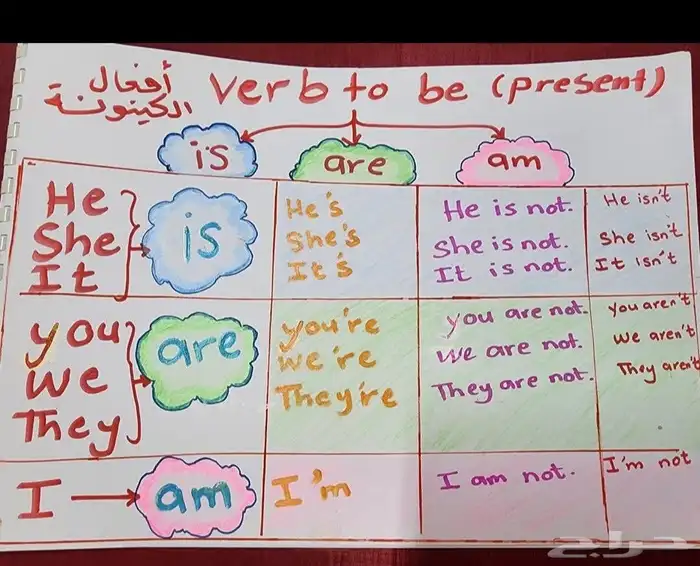 أفعال الكينونة verb to be (present)
is are am
He She It is He's She's It's He is not. She is not. It is not. He isn't She isn't It isn't
you we They are you're we're They're you are not. we are not. They are not. you aren't we aren't They aren't
I am I'm I am not. I'm not
حراج